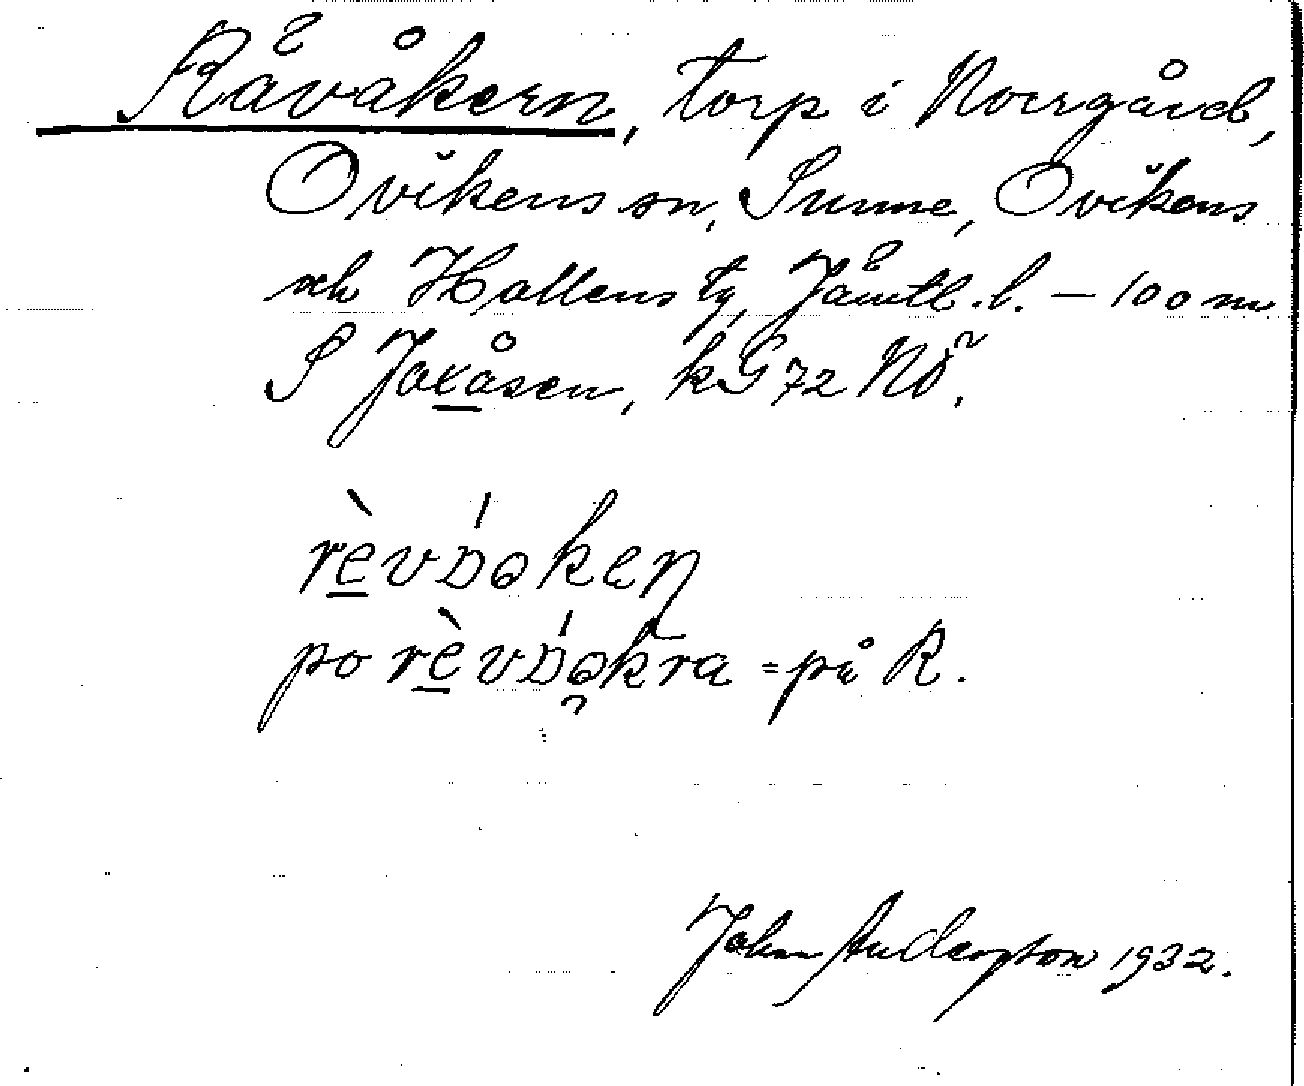 Rävåkern, torp i Norrgård,
Ovikens sn, Sunne, Ovikens
och Hallens tg, Jämtl. l. – 100 m
S Jaxåsen, kG 72 NÖ.
rèvɒ́ɷken
po rèvɒ́ɷkra = på R.
John Andersson 1932.